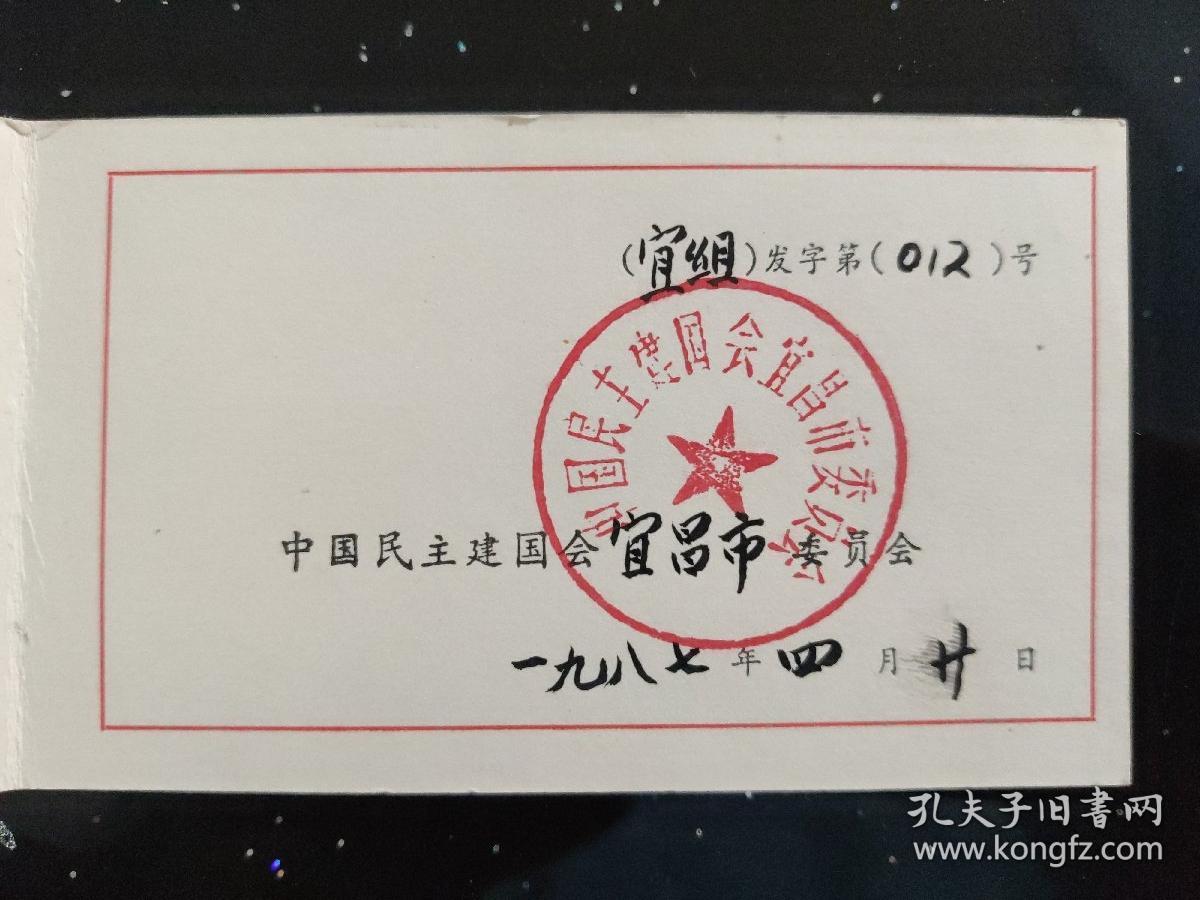 (宜组)发字第(012)号
中国民主建国会宜昌市委员会
中国民主建国会宜昌市委员会
一九八七年四月廿日
孔夫子旧书网
www.kongfz.com